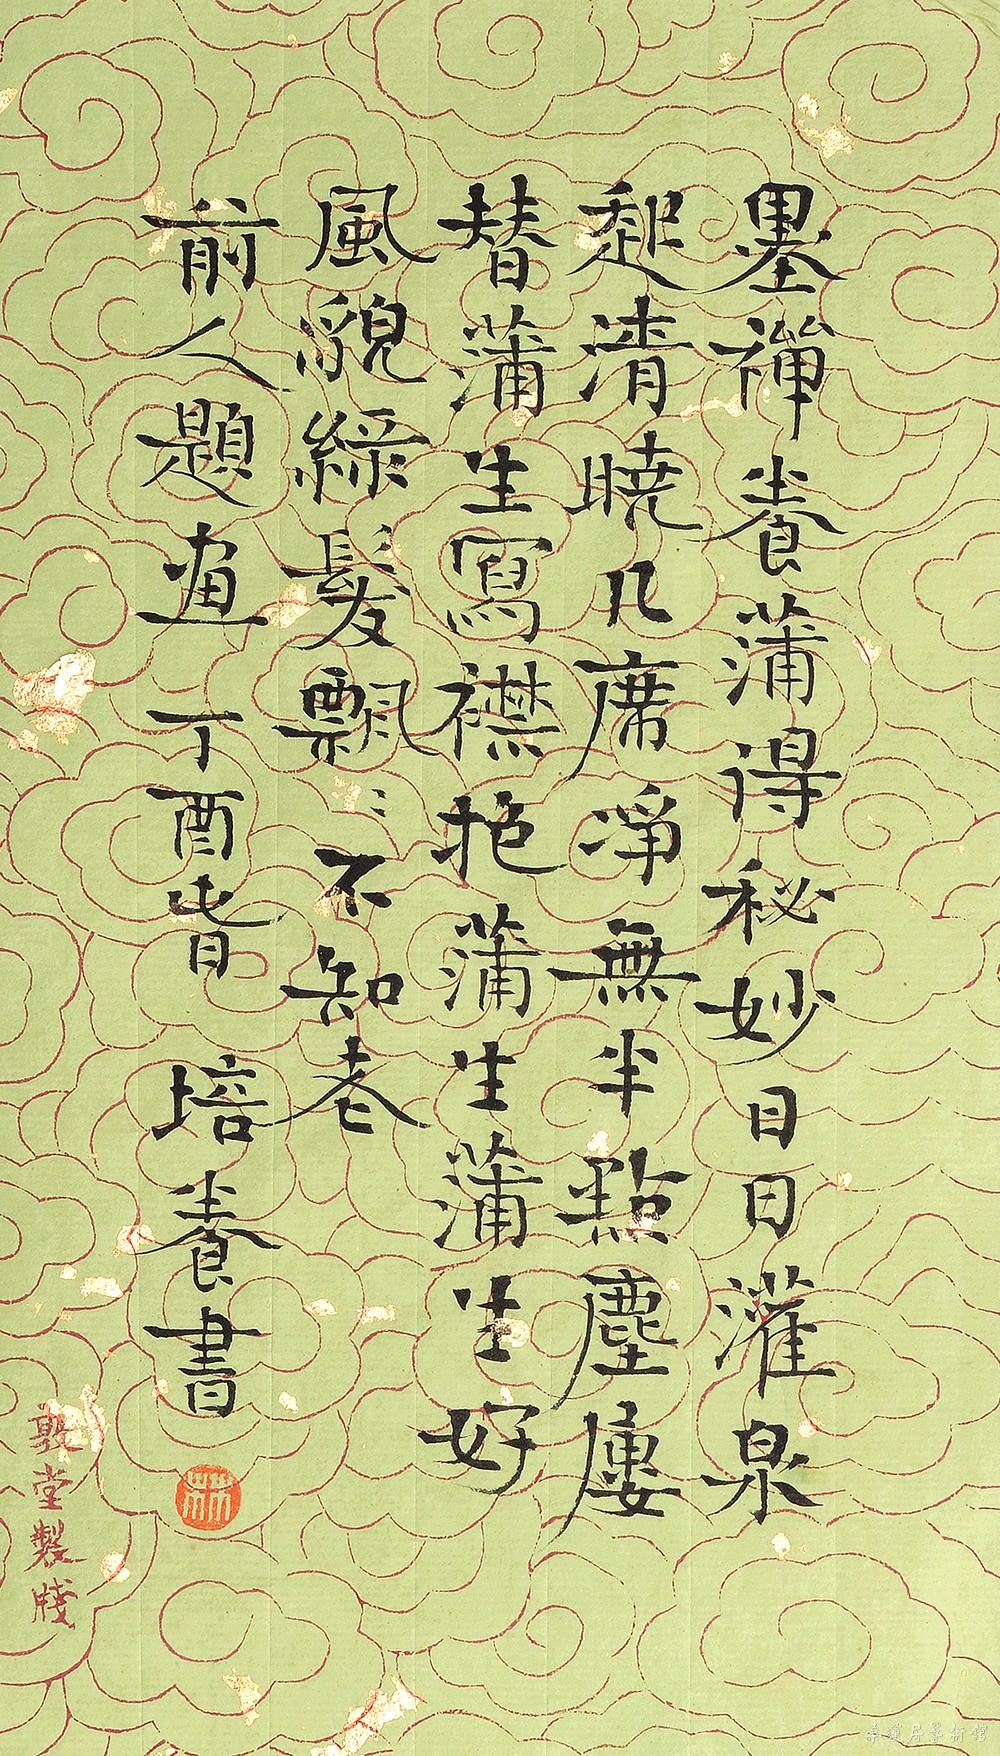 墨禪養蒲得秘妙日日灌泉
起清曉几席淨無半點塵屢
替蒲生寫襟抱蒲生蒲生好
風貌綠髮飄〻不知老
前人題畫 丁酉旾 培養書
敦堂製牋
桑蓮居藝術館